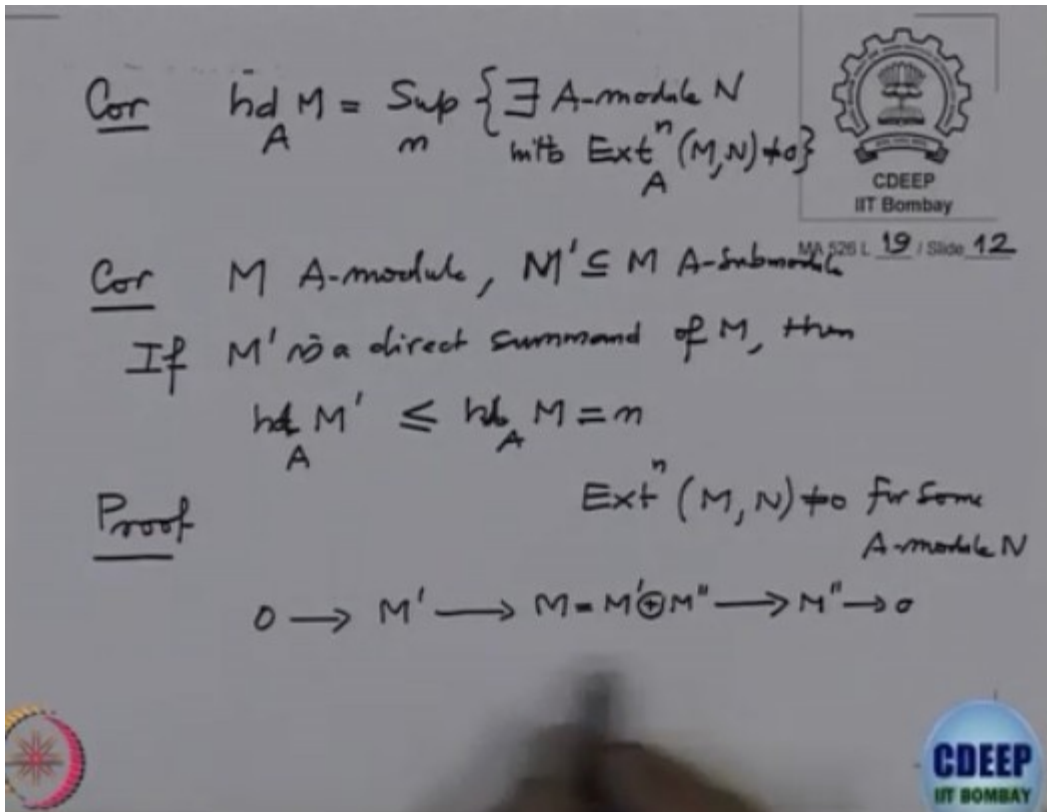 Cor hd_A M = Sup_n { ∃ A-module N
with Ext^n_A (M,N) ≠ 0 }
CDEEP
IIT Bombay
MA 526 L 19 / Slide 12
Cor M A-module, M' ⊆ M A-submodule
If M' is a direct summand of M, then
hd_A M' ≤ hd_A M = n
Proof Ext^n (M, N) ≠ 0 for some
A-module N
0 → M' → M = M' ⊕ M'' → M'' → 0
CDEEP
IIT BOMBAY